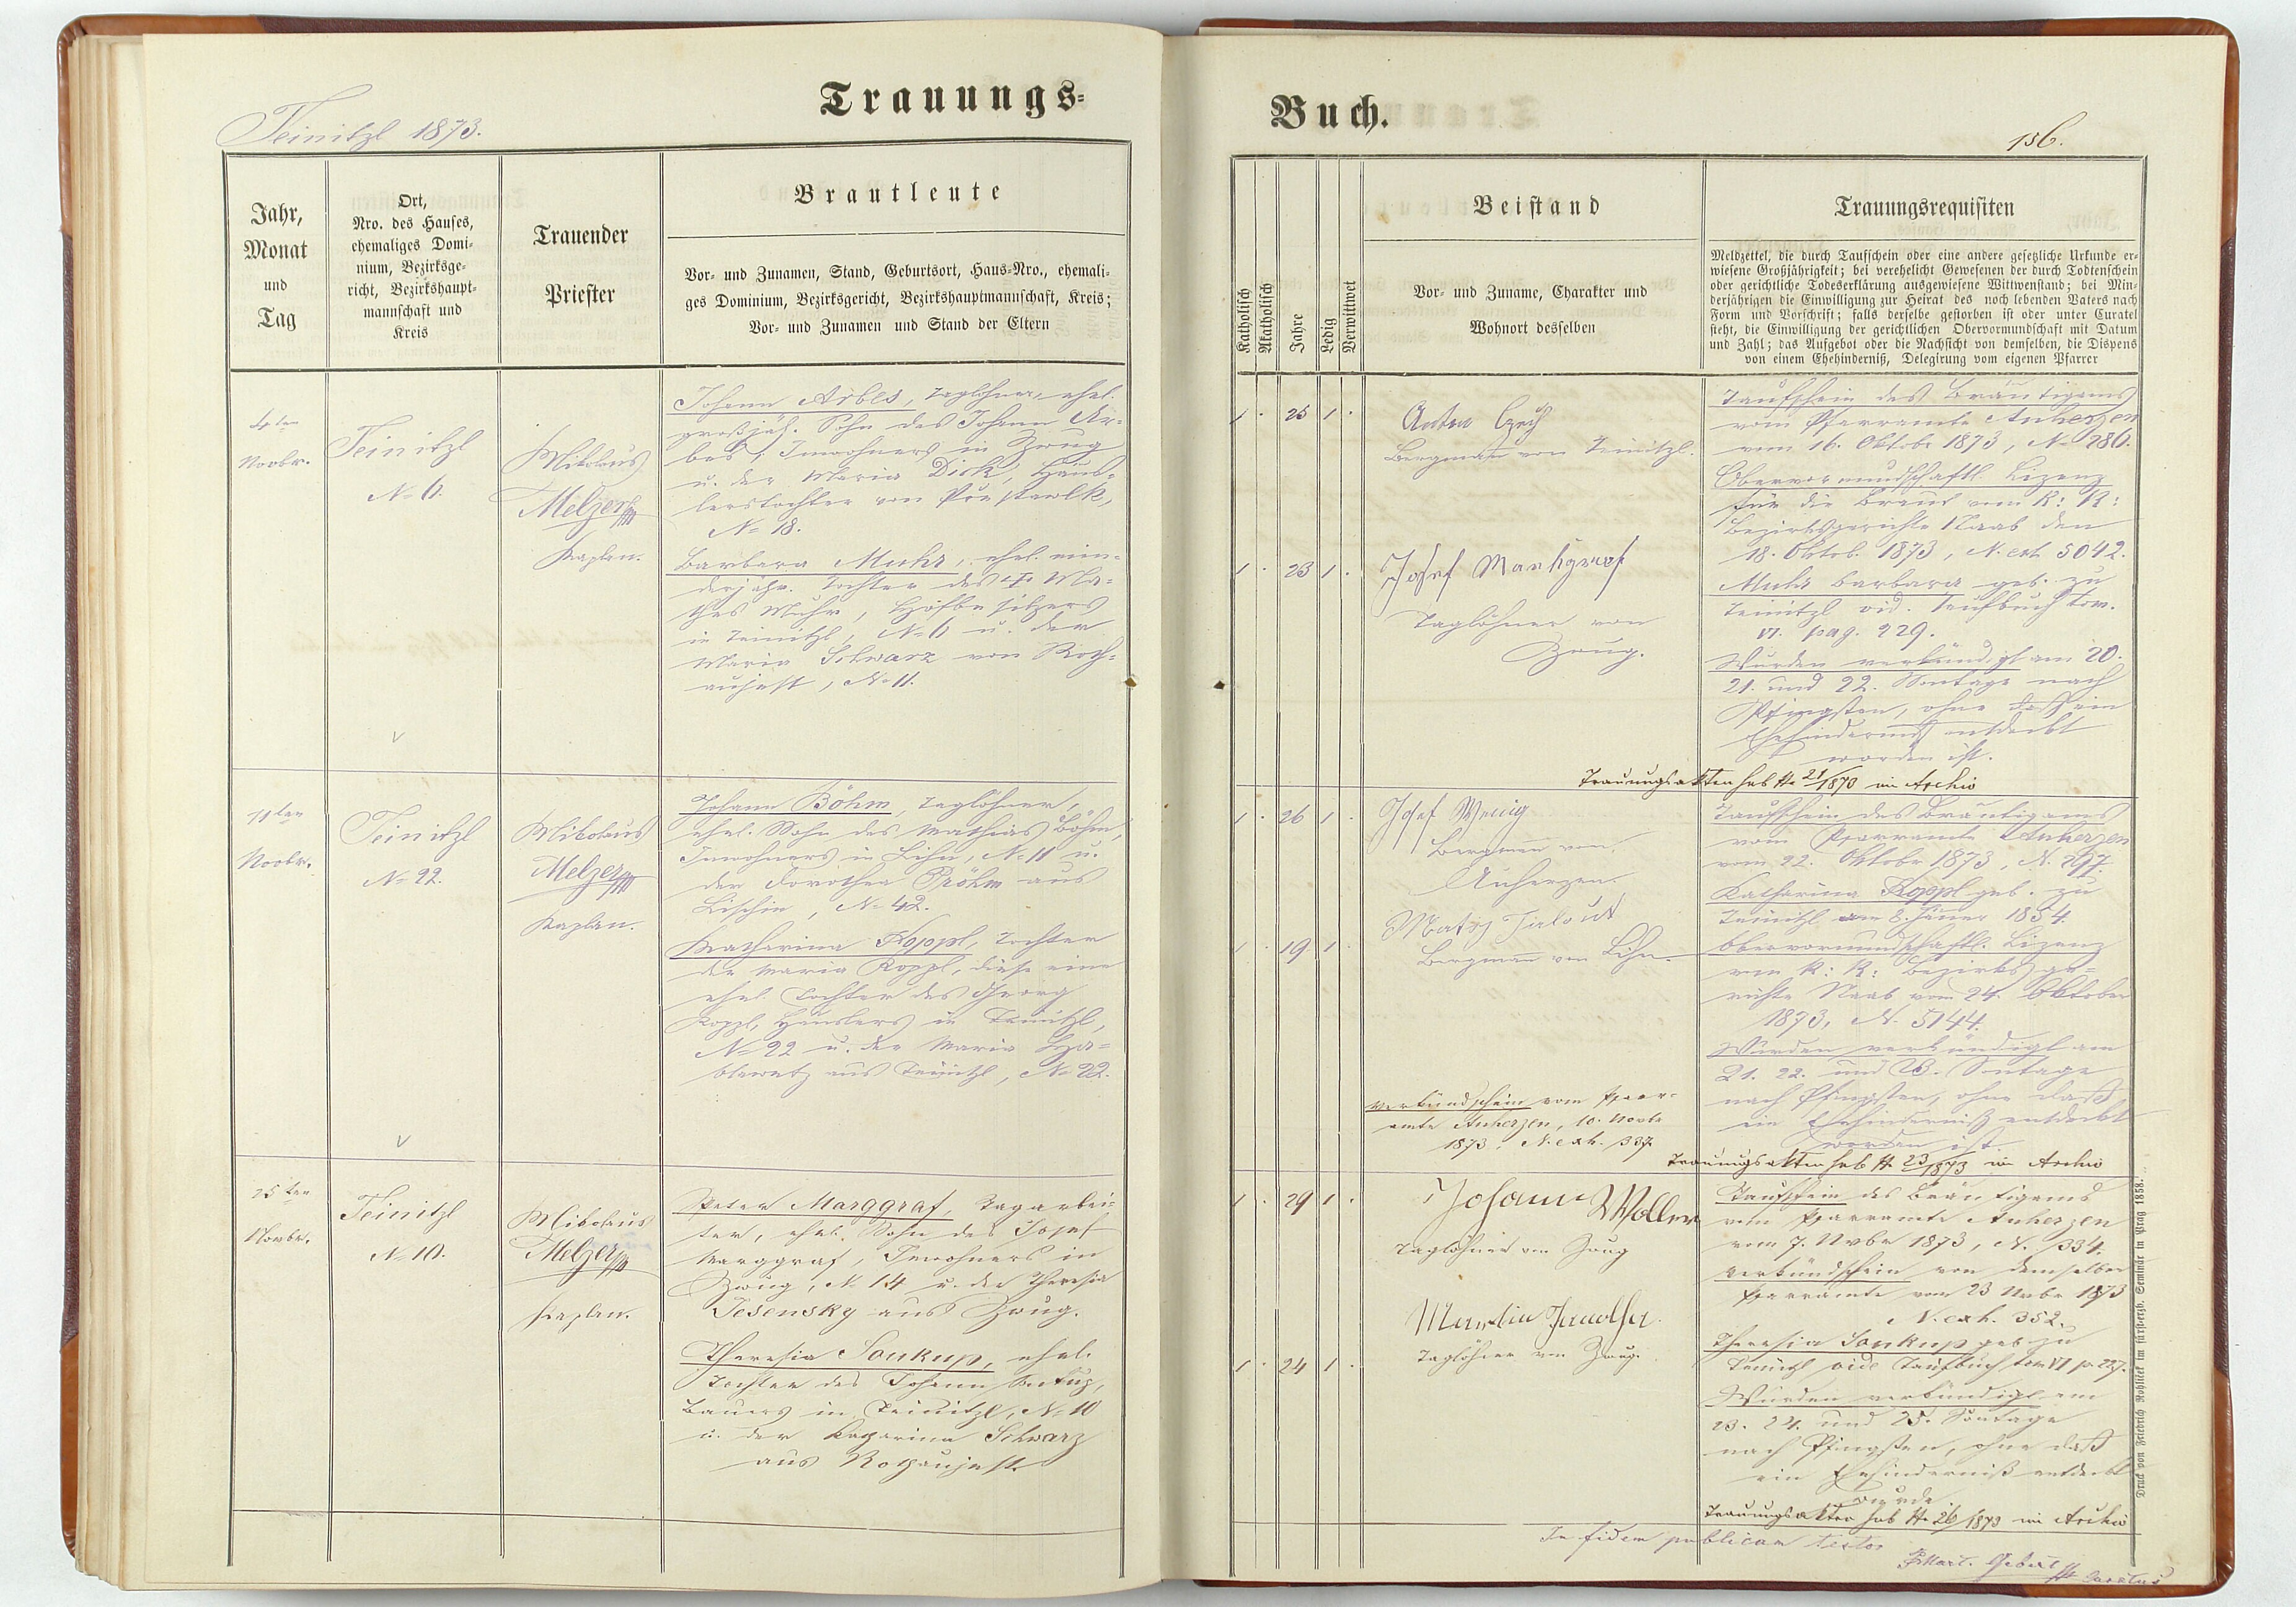 Trauungs-
Teinitzl 1873.
Jahr,
Monat
und
Tag
Ort,
Nro. des Hauses,
ehemaliges Domi-
nium, Bezirksge-
richt, Bezirkshaupt-
mannschaft und
Kreis
Trauender
Priester
Brautleute
Vor- und Zunamen, Stand, Geburtsort, Haus-Nro., ehemali-
ges Dominium, Bezirksgericht, Bezirkshauptmannschaft, Kreis;
Vor- und Zunamen und Stand der Eltern
4ten
Novbr.
Teinitzl
No 6.
Mikolaus
Melzer
Kaplan.
Johann Arbes, Taglöhner, ehel.
großjäh. Sohn des Johann Ar-
bes, Inwohners in Zwug
u. der Maria Disk, Häus-
lerstochter von
No 18.
Barbara Muhr, ehel. min-
derjähr. Tochter des Ma-
thes Muhr, Hofbesitzers
in Teinitzl, No 6 u. der
Maria Schwarz von Roth-
aujest, No 11.
11ten
Novbr.
Teinitzl
No 22.
Mikolaus
Melzer
Kaplan.
Johann Böhm, Taglöhner,
ehel. Sohn des Mathias Böhm,
Inwohners in Lihn, No 11 u.
der Dorothea Pröhm aus
Lischin, No 42.
Katharina Koppl, Tochter
der Maria Koppl, diese eine
ehel. Tochter des Georg
Koppl, Häuslers in Teinitzl,
No 22 u. der Maria
aus Teinitzl, No 22.
25ten
Novbr.
Teinitzl
No 10.
Mikolaus
Melzer
Kaplan.
Peter Marggraf, Tagarbei-
ter, ehel. Sohn des Josef
Marggraf, Inwohners in
Zwug, No 14 u. der Theresia
Jesensky aus Zwug.
Theresia Soukup, ehel.
Tochter des Johann Soukup,
Bauers in Teinitzl, No 10
u. der Katharina Schwarz
aus Rothaujest.
Buch.
156.
Katholisch
Akatholisch
Jahre
Ledig
Verwittwet
Beistand
Vor- und Zuname, Charakter und
Wohnort desselben
Trauungsrequisiten
Meldzettel, die durch Taufschein oder eine andere gesetzliche Urkunde er-
wiesene Großjährigkeit; bei verehelicht Gewesenen der durch Todtenschein
oder gerichtliche Todeserklärung ausgewiesene Wittwenstand; bei Min-
derjährigen die Einwilligung zur Heirat des noch lebenden Vaters nach
Form und Vorschrift; falls derselbe gestorben ist oder unter Curatel
steht, die Einwilligung der gerichtlichen Obervormundschaft mit Datum
und Zahl; das Aufgebot oder die Nachsicht von demselben, die Dispens
von einem Ehehinderniß, Delegirung vom eigenen Pfarrer
1 . 25 1 .
Anton Czech
Bergmann von Teinitzl.
1 . 23 1 .
Josef Markgraf
Taglöhner von
Zwug.
Taufschein des Bräutigams
vom Pfarramte Anherzen
vom 16. Oktobr 1873, No 286.
Obervormundschaftl. Lizenz
für die Braut vom K: K:
Bezirksgerichte Staab den
18. Oktob. 1873, N. exh 5042.
Muhr Barbara geb. zu
Teinitzl vid. Taufbuch tom.
VI. pag. 229.
Wurden verkündigt am 20.
21. und 22. Sontage nach
Pfingsten, ohne daß ein
Ehehinderniß entdeckt
worden ist.
Trauungsakten sub No 21/1873 im Archiv
1 . 26 1 .
Josef Wenig
Bergmann von
Anherzen.
1 . 19 1 .
Bergmann von Lihn.
Verkündschein vom Pfarr-
amte Anherzen, 10. Novbr
1873, N. exh. 337.
Taufschein des Bräutigams
vom Pfarramte Anherzen
vom 22. Oktobr 1873, N. 297.
Katharina Koppl geb. zu
Teinitzl am 8. Jäner 1854.
Obervormundschaftl. Lizenz
vom K: K: Bezirksge-
richte Staab vom 24. Oktober
1873, N. 5144.
Wurden verkündigt am
21. 22. und 23. Sontage
nach Pfingsten, ohne daß
ein Ehehinderniß entdeckt
worden ist.
Trauungsakten sub No 23/1873 im Archiv
1 . 29 1 .
Johann Woller
Taglöhner von Zwug
1 . 24 1 .
Martin
Taglöhner von Zwug.
Taufschein des Bräutigams
vom Pfarramte Anherzen
vom 7. Nvbr 1873, N. 334.
Verkündschein von demselben
Pfarramte vom 23 Nvbr 1873
N. exh. 352.
Theresia Soukup geb. zu
Teinitzl vide Taufbuch tom VI p. 227.
Wurden verkündigt am
23. 24. und 25. Sontage
nach Pfingsten, ohne daß
ein Ehehinderniß entdeckt
wurde.
Trauungsakten sub No 26/1873 im Archiv
In fidem publicam testor
Mart. Gebert
Druck von Friedrich Rohliček im fürsterzb. Seminär in Prag 1858.